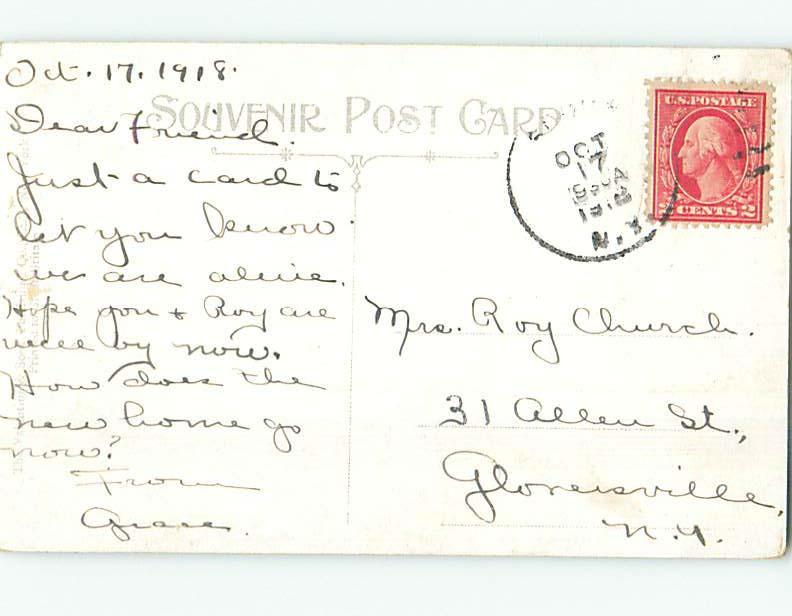 Oct. 17. 1918.
SOUVENIR POST CARD
Dear Friend.
Just a card to
let you know
we are alive.
Hope you & Roy are
well by now.
How does the
new home go
now?
From
Grace.
U.S. POSTAGE
2 CENTS 2
OCT
17
1918
N.Y.
Mrs. Roy Church.
31 Allen St.,
Gloversville,
N.Y.